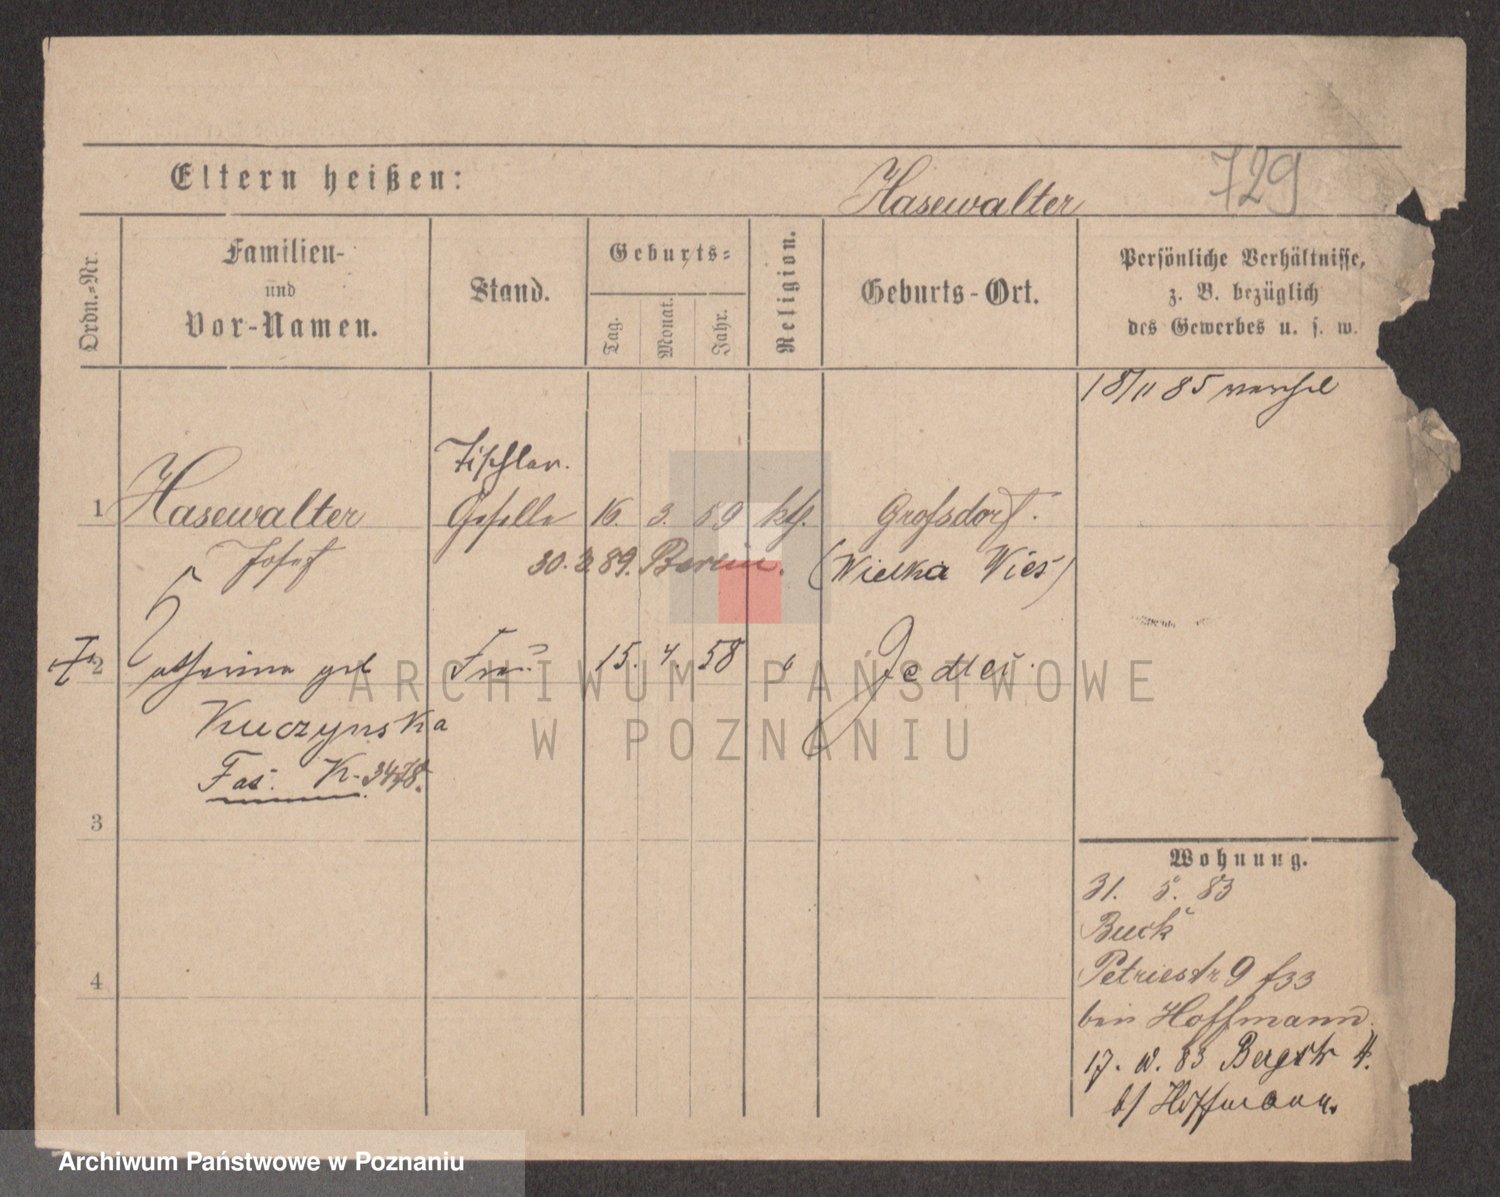 729
Eltern heißen:
Hasewalter
Ordn.-Nr.
Familien-
und
Vor-Namen.
Stand.
Geburts-
Tag.
Monat.
Jahr.
Religion.
Geburts-Ort.
Persönliche Verhältnisse,
z. B. bezüglich
des Gewerbes u. s. w.
18/11 85
Tischler.
1 Hasewalter Geselle 16. 3. 59 kth. Grofsdorf.
Josef 30. 89. Berlin. (Wielka Wieś)
2 Catharina geb Frau 15. 4. 58
Kuczynska
Fas. K. 3478.
3
4
Wohnung.
31. 5. 83
Buck
Petriestr 9
bei Hoffmann
17. 83 Bergstr 4.
b/ Hoffmann.
ARCHIWUM PAŃSTWOWE
W POZNANIU
Archiwum Państwowe w Poznaniu